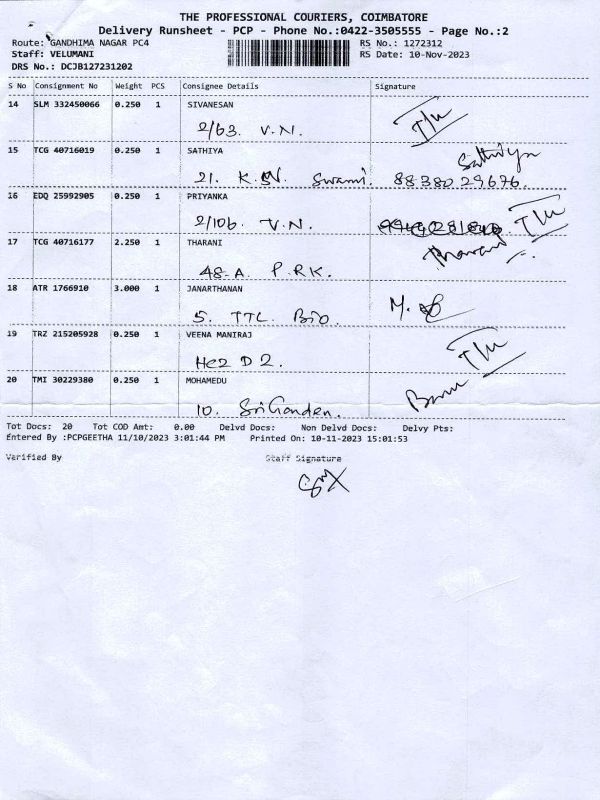 THE PROFESSIONAL COURIERS, COIMBATORE
Delivery Runsheet - PCP - Phone No.:0422-3505555 - Page No.:2
Route: GANDHIMA NAGAR PC4 RS No.: 1272312
Staff: VELUMANI RS Date: 10-Nov-2023
DRS No.: DCJB127231202
S No Consignment No Weight PCS Consignee Details Signature
14 SLM 332450066 0.250 1 SIVANESAN
2/63. V.N.
15 TCG 40716019 0.250 1 SATHIYA Sathiya
21. K. Swami. 88380 29676.
16 EDQ 25992905 0.250 1 PRIYANKA
2/106 V.N.
17 TCG 40716177 2.250 1 THARANI Tharani
48-A P.RK.
18 ATR 1766910 3.000 1 JANARTHANAN
5. TTC. Bio. M.
19 TRZ 215205928 0.250 1 VEENA MANIRAJ
20 TMI 30229380 0.250 1 MOHAMEDU
10. Sri Garden.
Tot Docs: 20 Tot COD Amt: 0.00 Delvd Docs: Non Delvd Docs: Delvy Pts:
Entered By :PCPGEETHA 11/10/2023 3:01:44 PM Printed On: 10-11-2023 15:01:53
Verified By Staff Signature